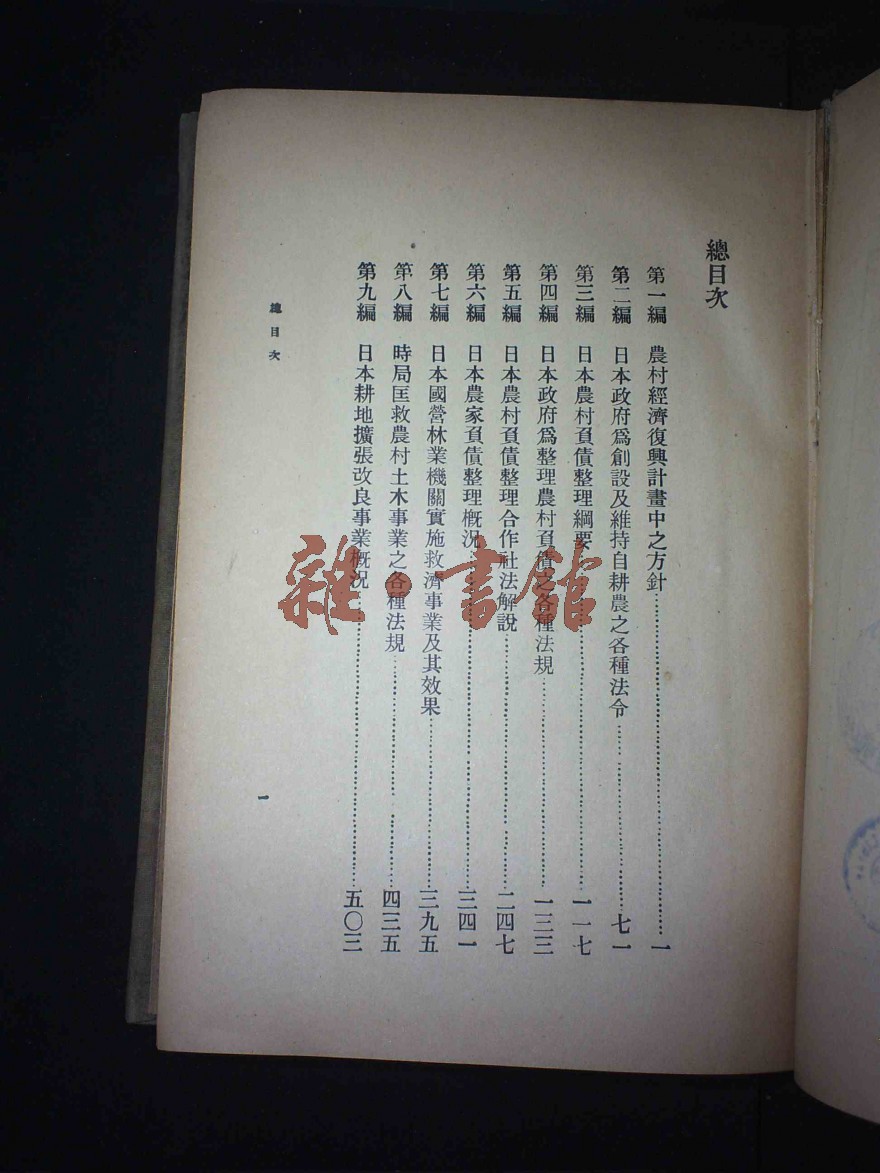 總目次
第一編 農村經濟復興計畫中之方針……一
第二編 日本政府爲創設及維持自耕農之各種法令……七一
第三編 日本農村負債整理綱要……一一七
第四編 日本政府爲整理農村負債之各種法規……一三三
第五編 日本農村負債整理合作社法解說……二四七
第六編 日本農家負債整理概況……三四一
第七編 日本國營林業機關實施救濟事業及其效果……三九五
第八編 時局匡救農村土木事業之各種法規……四三五
第九編 日本耕地擴張改良事業概況……五〇三
總目次
一
雜·書館